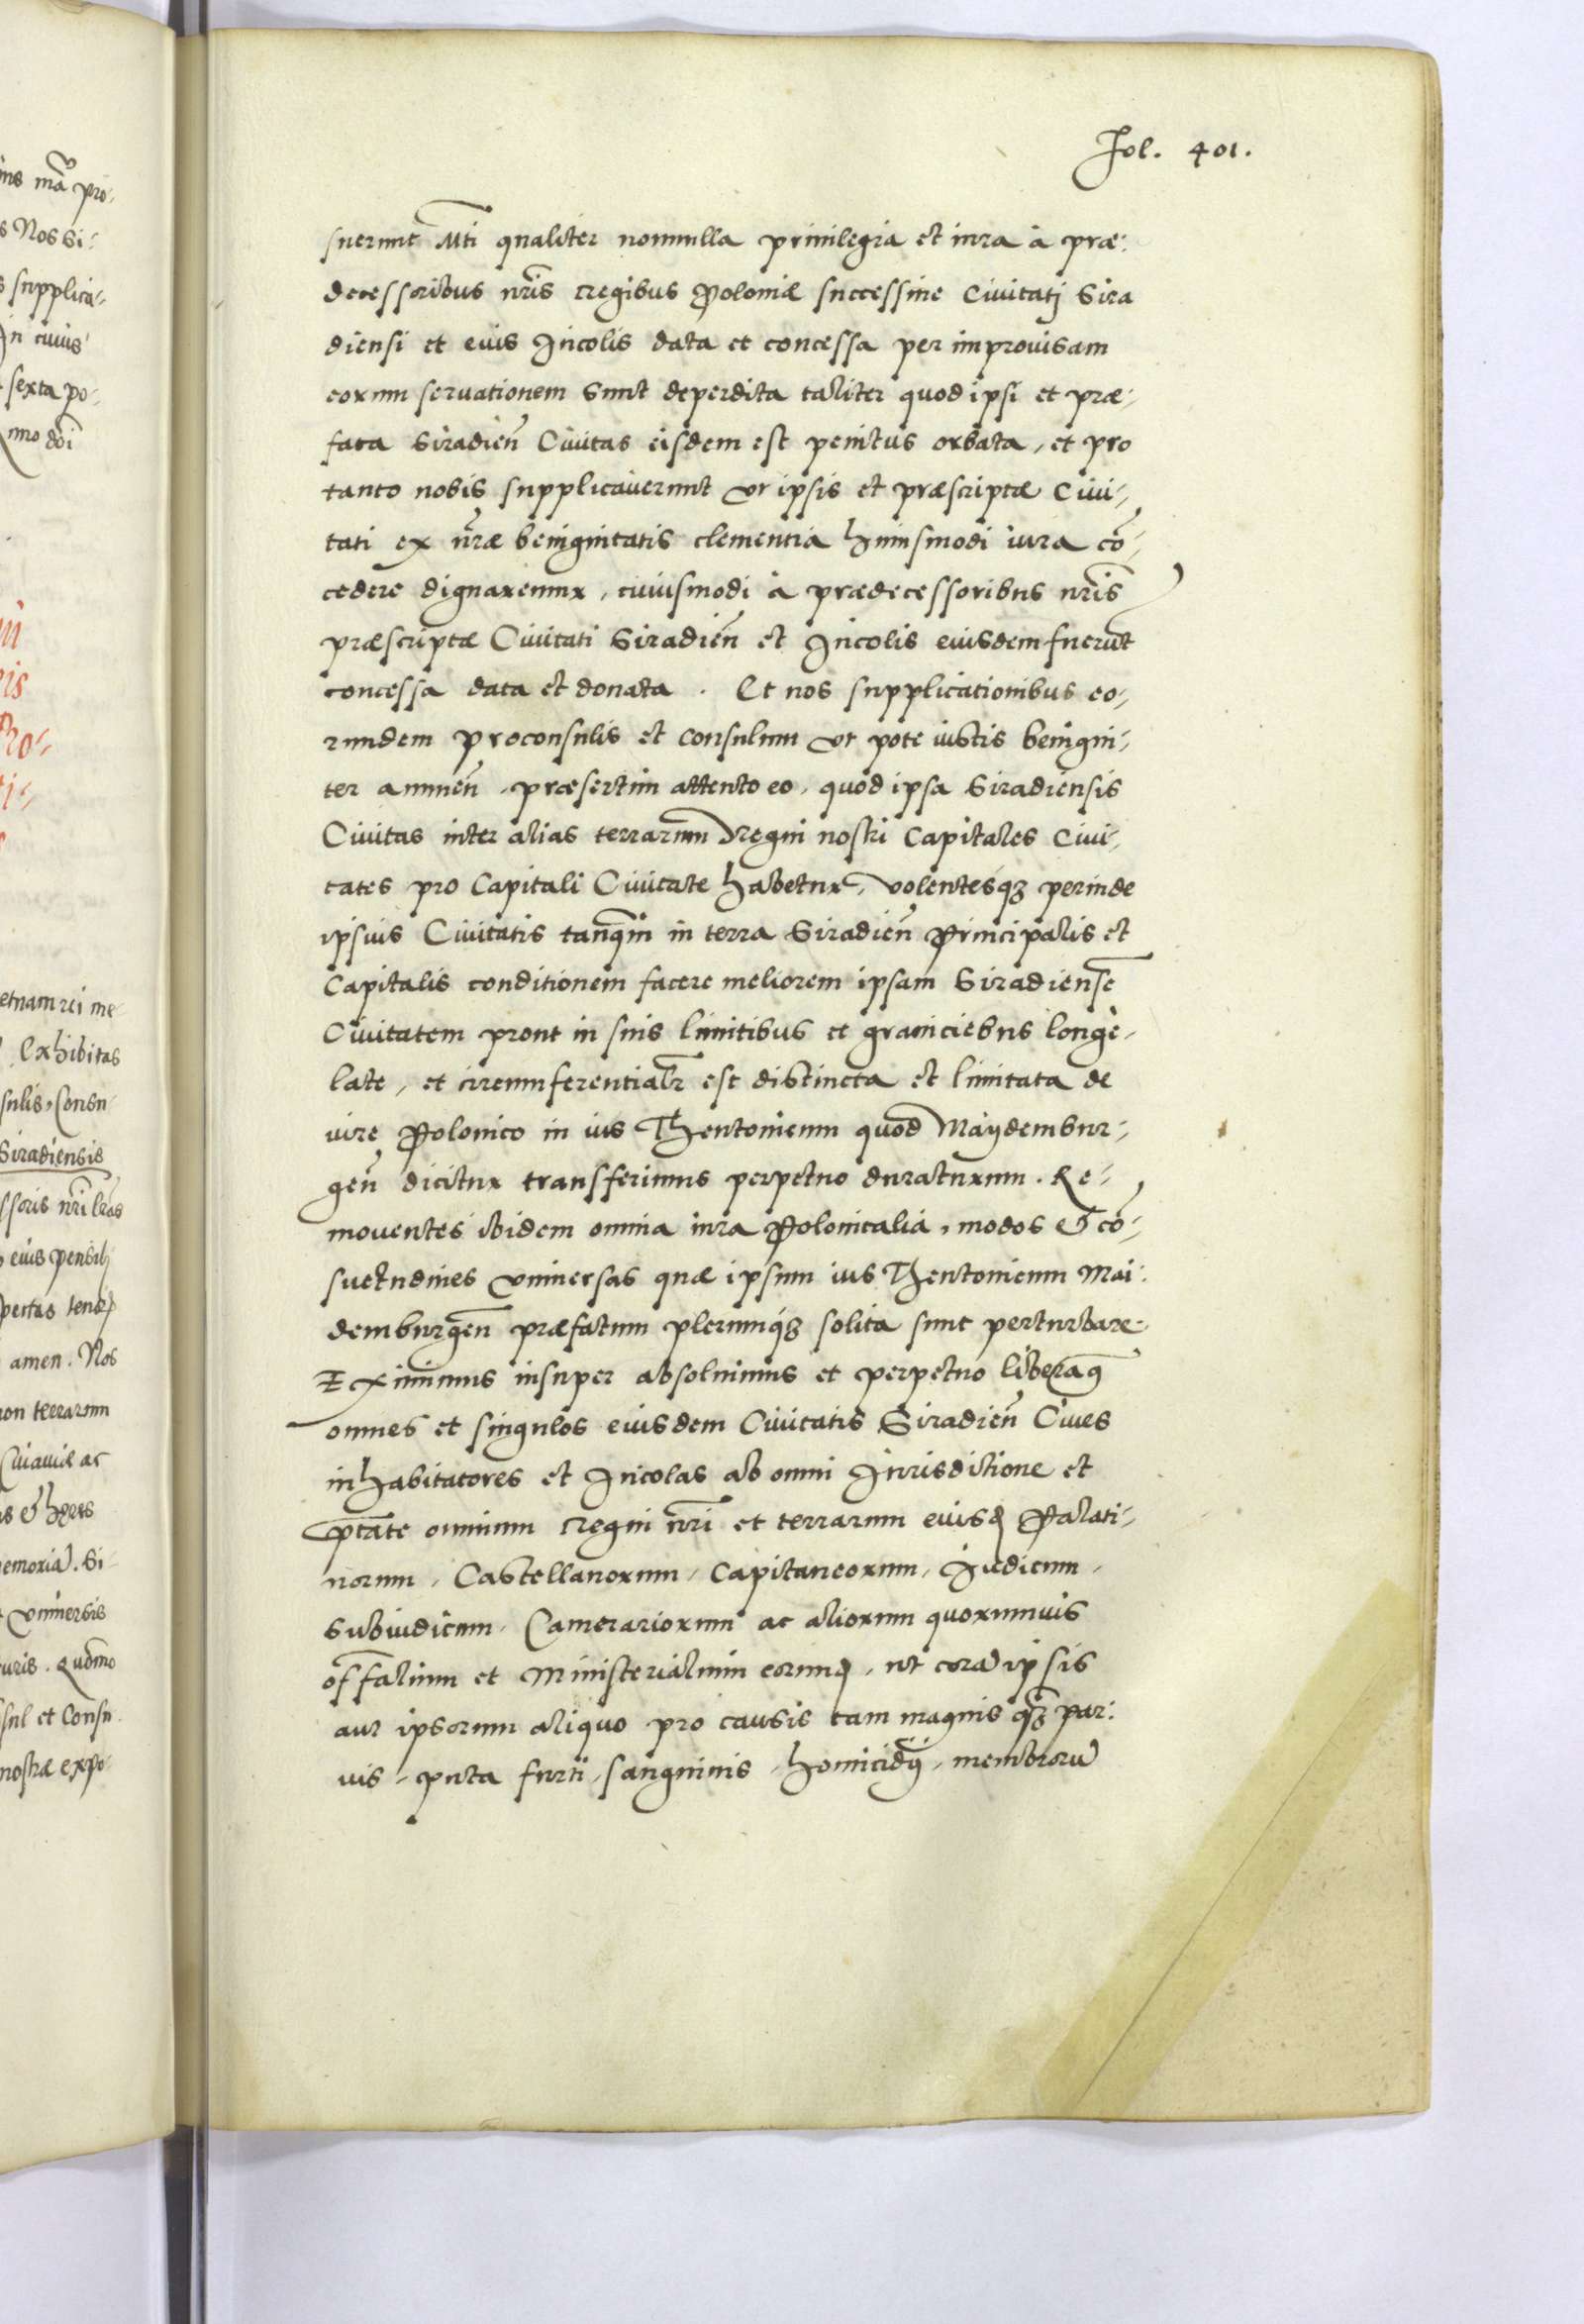 Fol. 401.
suerunt Mti qualiter nonnulla priuilegia et iura à præ:
decessoribus nris regibus Poloniæ successiue Ciuitatj Sira
diensi et eius Incolis data et concessa per improuisam
eorum seruationem sunt deperdita taliter quod ipsi et præ-
fata Siradien Ciuitas eisdem est penitus orbata, et pro
tanto nobis supplicauerunt vt ipsis et præscriptæ Ciui-
tati ex nræ benignitatis clementia huiusmodi iura cō-
cedere dignaremur, cuiusmodi à prædecessoribus nris
præscriptæ Ciuitati Siradien et Incolis eiusdem fuerūt
concessa data et donata. Et nos supplicationibus eo-
rundem proconsulis et consulum vt pote iustis benigni-
ter annuen, præsertim attento eo, quod ipsa Siradiensis
Ciuitas inter alias terrarum regni nostri Capitales Ciui-
tates pro Capitali Ciuitate habetur, volentesq₃ perinde
ipsius Ciuitatis tanqm in terra Siradien Principalis et
Capitalis conditionem facere meliorem ipsam Siradiense
Ciuitatem prout in suis limitibus et graniciebus longè-
late, et circumferentialr est distincta et limitata de
iure Polonico in ius Theutonicum quod Maydembur-
gen dicitur transferimus perpetuo duraturum. Re-
mouentes ibidem omnia iura Polonicalia, modos & cō-
suetudines vniuersas quæ ipsum ius Theutonicum Mai:
demburgen præfatum plerumq₃ solita sunt perturbare.
Eximimus insuper absoluimus et perpetuo liberamꝰ
omnes et singulos eiusdem Ciuitatis Siradien Ciues
inhabitatores et Incolas ab omni Iurisditione et
ptāte omnium regni nri et terrarum eiusd Palati-
norum, Castellanorum, Capitaneorum, Iudicum,
Subiudicum, Camerariorum ac aliorum quorumuis
offalium et Ministerialium eorund, ut corā ipsis
aut ipsorum aliquo pro causis tam magnis q₃ par:
uis, puta furti, sanguinis, homicidij, membrorū